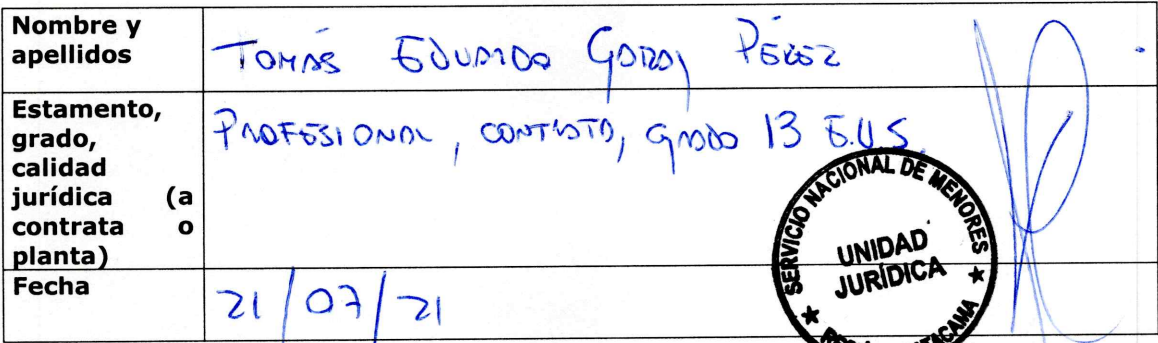 Nombre y apellidos
TOMÁS EDUARDO GARAY PÉREZ
Estamento, grado, calidad jurídica (a contrata o planta)
PROFESIONAL, CONTRATA, GRADO 13 E.U.S.
Fecha
21/07/21
SERVICIO NACIONAL DE MENORES
UNIDAD
JURÍDICA
ATACAMA